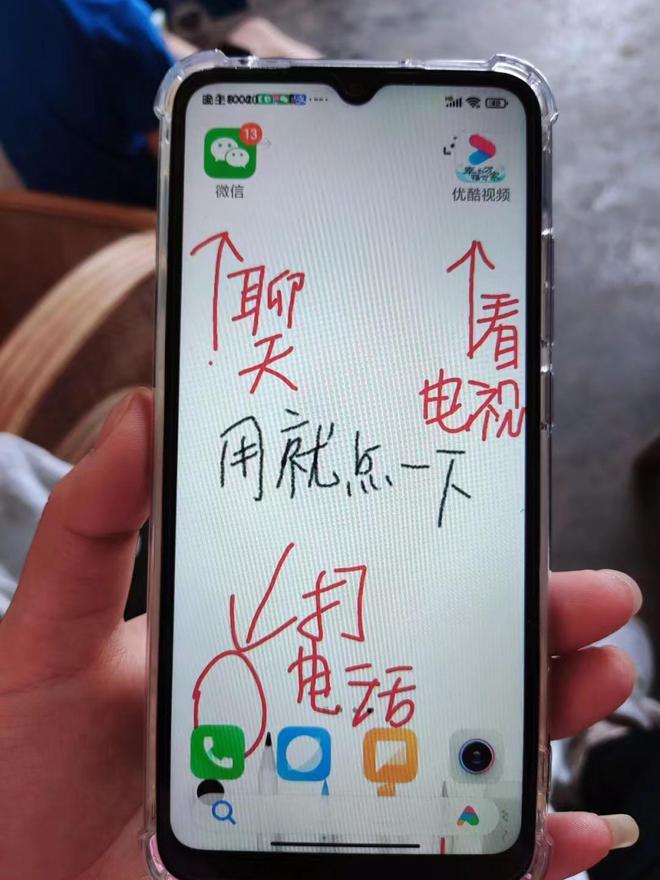 13
微信
优酷视频
聊
天
看
电视
用就点一下
打
电话